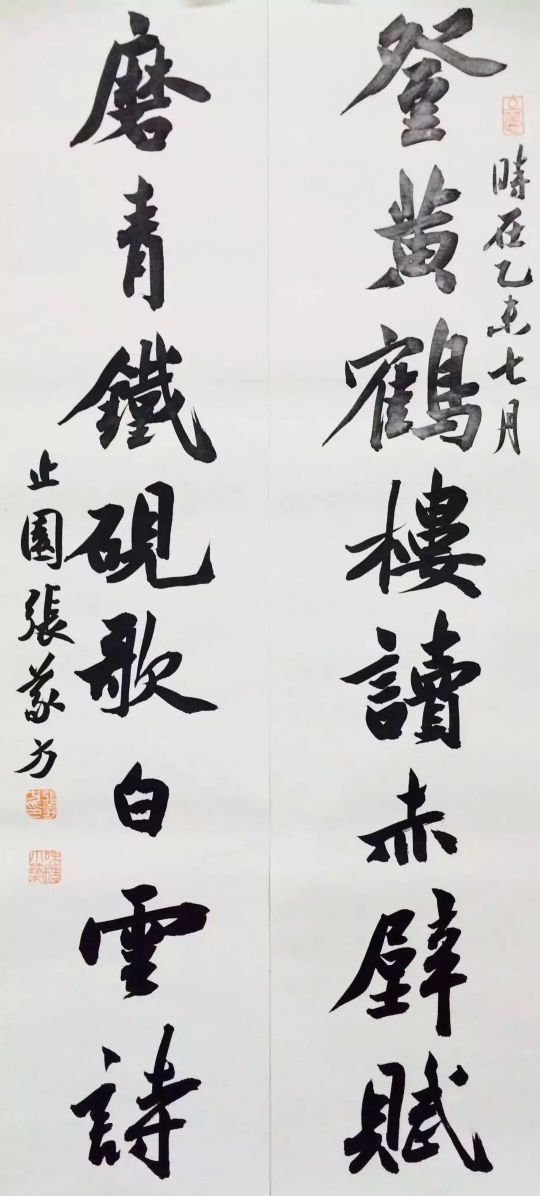 時在乙未七月
登黄鶴樓讀赤壁賦
磨青鐵硯歌白雲詩
止園張方